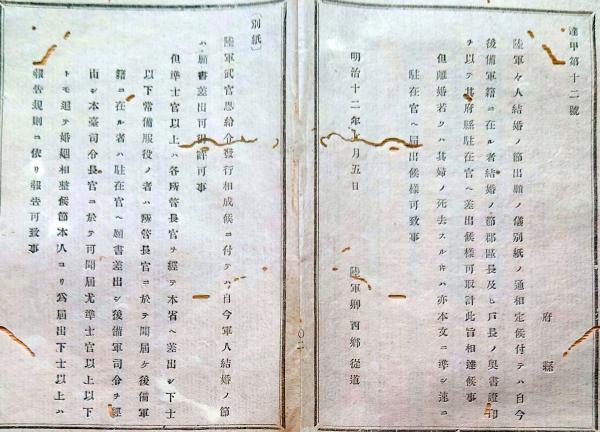 達甲第十二號
府縣
陸軍々人結婚ノ節出願ノ儀別紙ノ通相定候付テハ自今
後備軍籍ニ在ル者結婚ノ節郡區長及ヒ戸長ノ奥書證印
ヲ以テ其府縣駐在官ヘ差出候樣可取計此旨相達候事
但離婚若クハ其婦ノ死去スルキハ亦本文ニ準シ速ニ
駐在官ヘ屆出候樣可致事
明治十二年 月五日
陸軍卿西郷從道
(別紙)
陸軍武官恩給令發行相成候ニ付テハ自今軍人結婚ノ節
ハ願書差出可 許可事
但準士官以上ハ各所管長官ヲ經テ本省ヘ差出シ下士
以下常備服役ノ者ハ所管長官ニ於テ聞屆ケ後備軍
籍ニ在ル者ハ駐在官ヘ願書差出シ後備軍司令ヲ經
由シ本臺司令長官ニ於テ可聞屆尤準士官以上以下
トモ追テ婚姻相整候節本人ヨリ爲屆出下士以上ハ
報告規則ニ依リ報告可致事